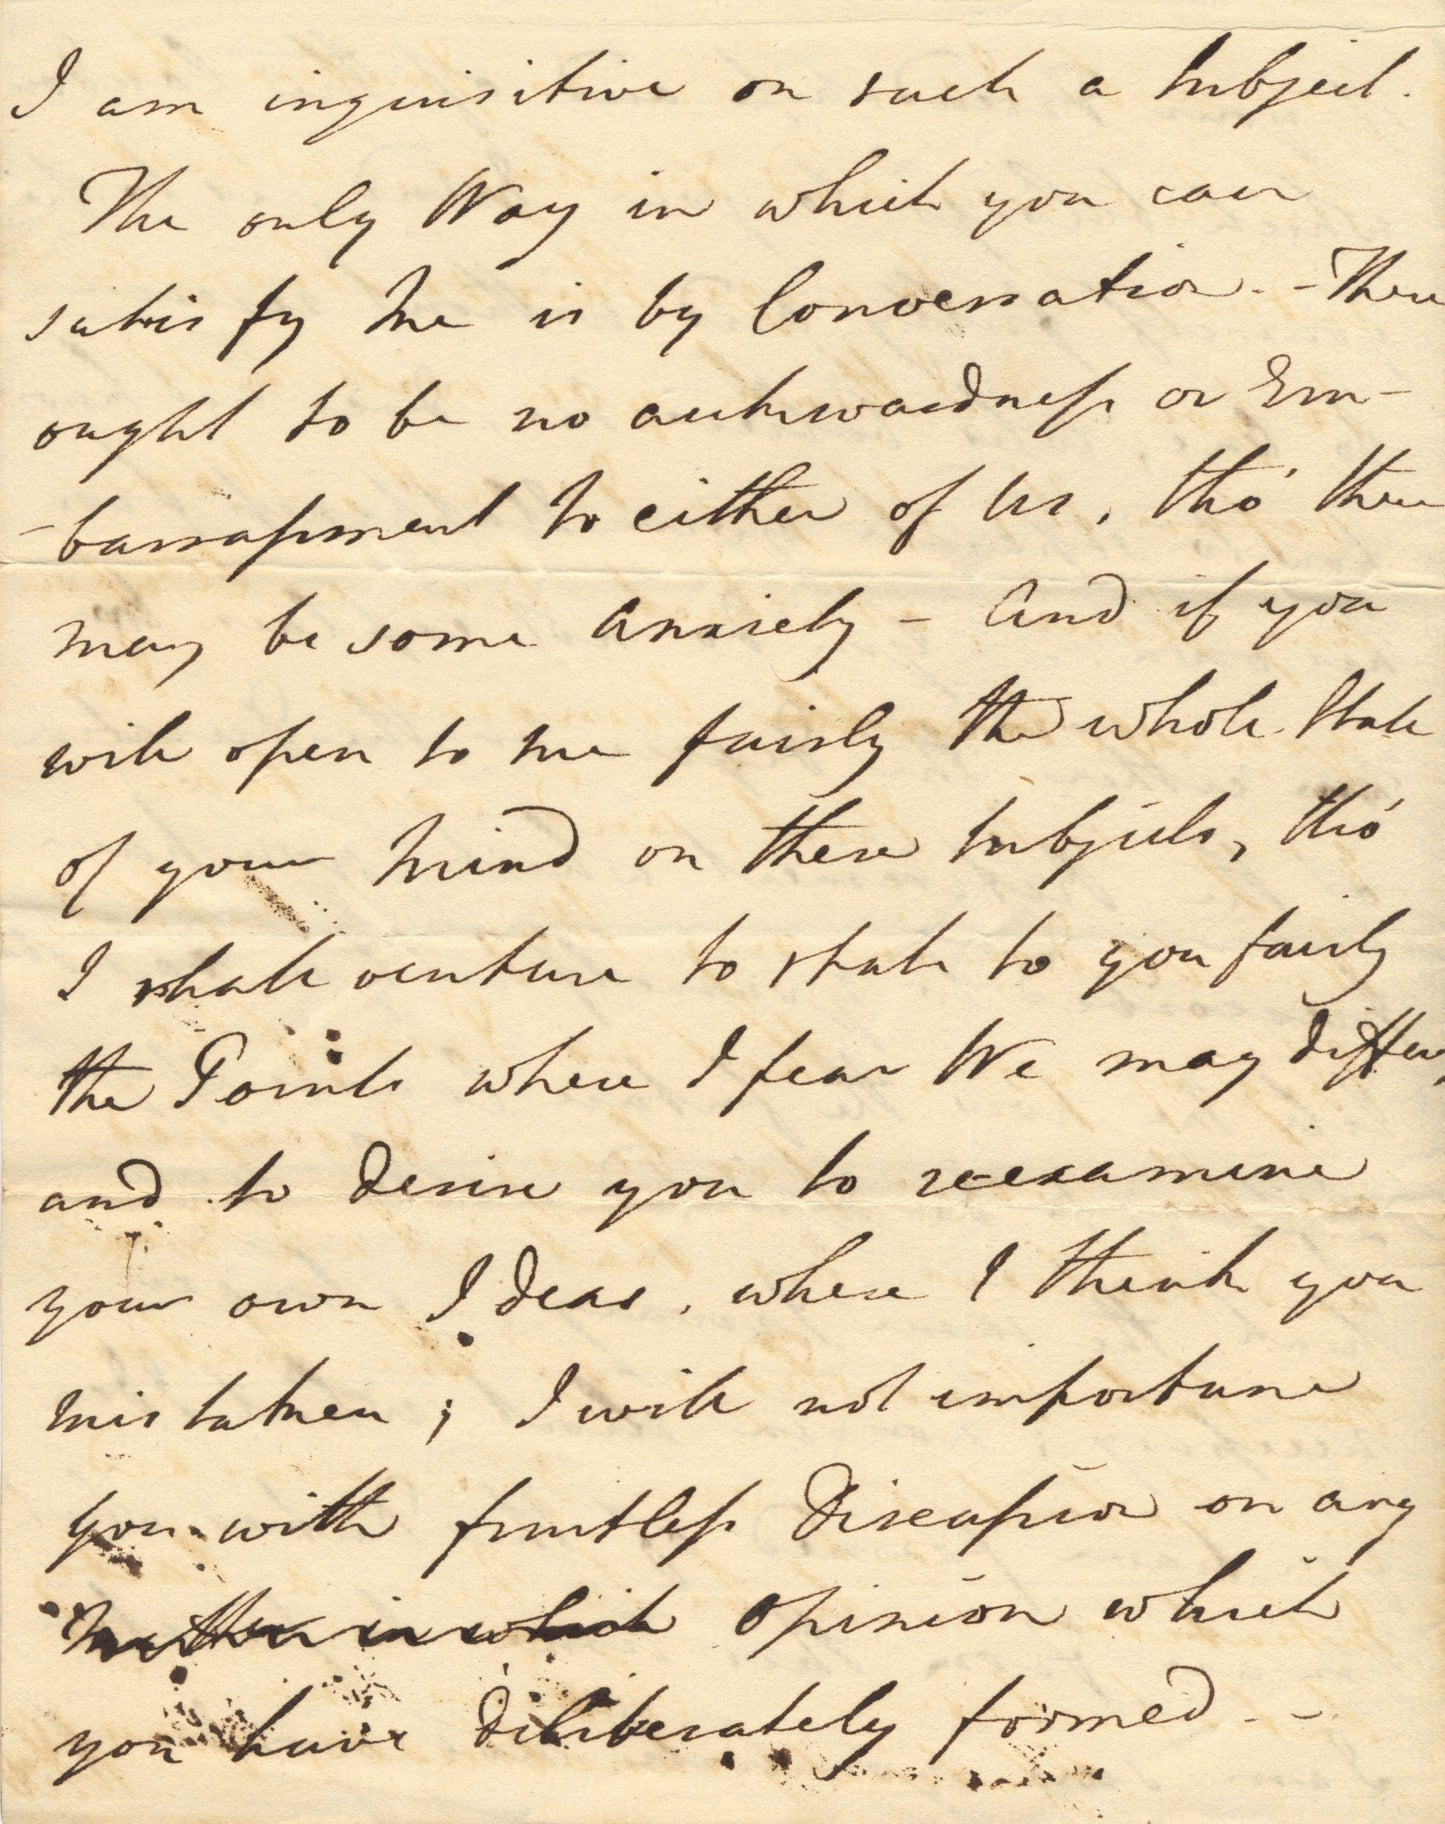 I am inquisitive on such a Subject.
The only Way in which you can
satisfy Me is by Conversation. - There
ought to be no aukwardness or Em-
-barrassment to either of Us, tho' there
may be some Anxiety - And if you
will open to me fairly the whole State
of your Mind on these Subjects, tho'
I shall venture to state to you fairly
the Points where I fear We may differ,
and to desire you to re-examine
your own Ideas, where I think you
mistaken; I will not importune
you with fruitless Discussion on any
Matter in which opinion which
you have deliberately formed. -